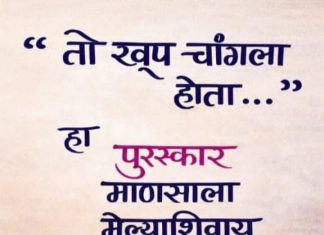 “ तो खूप चांगला
होता...”
हा
पुरस्कार
माणसाला
मेल्याशिवाय